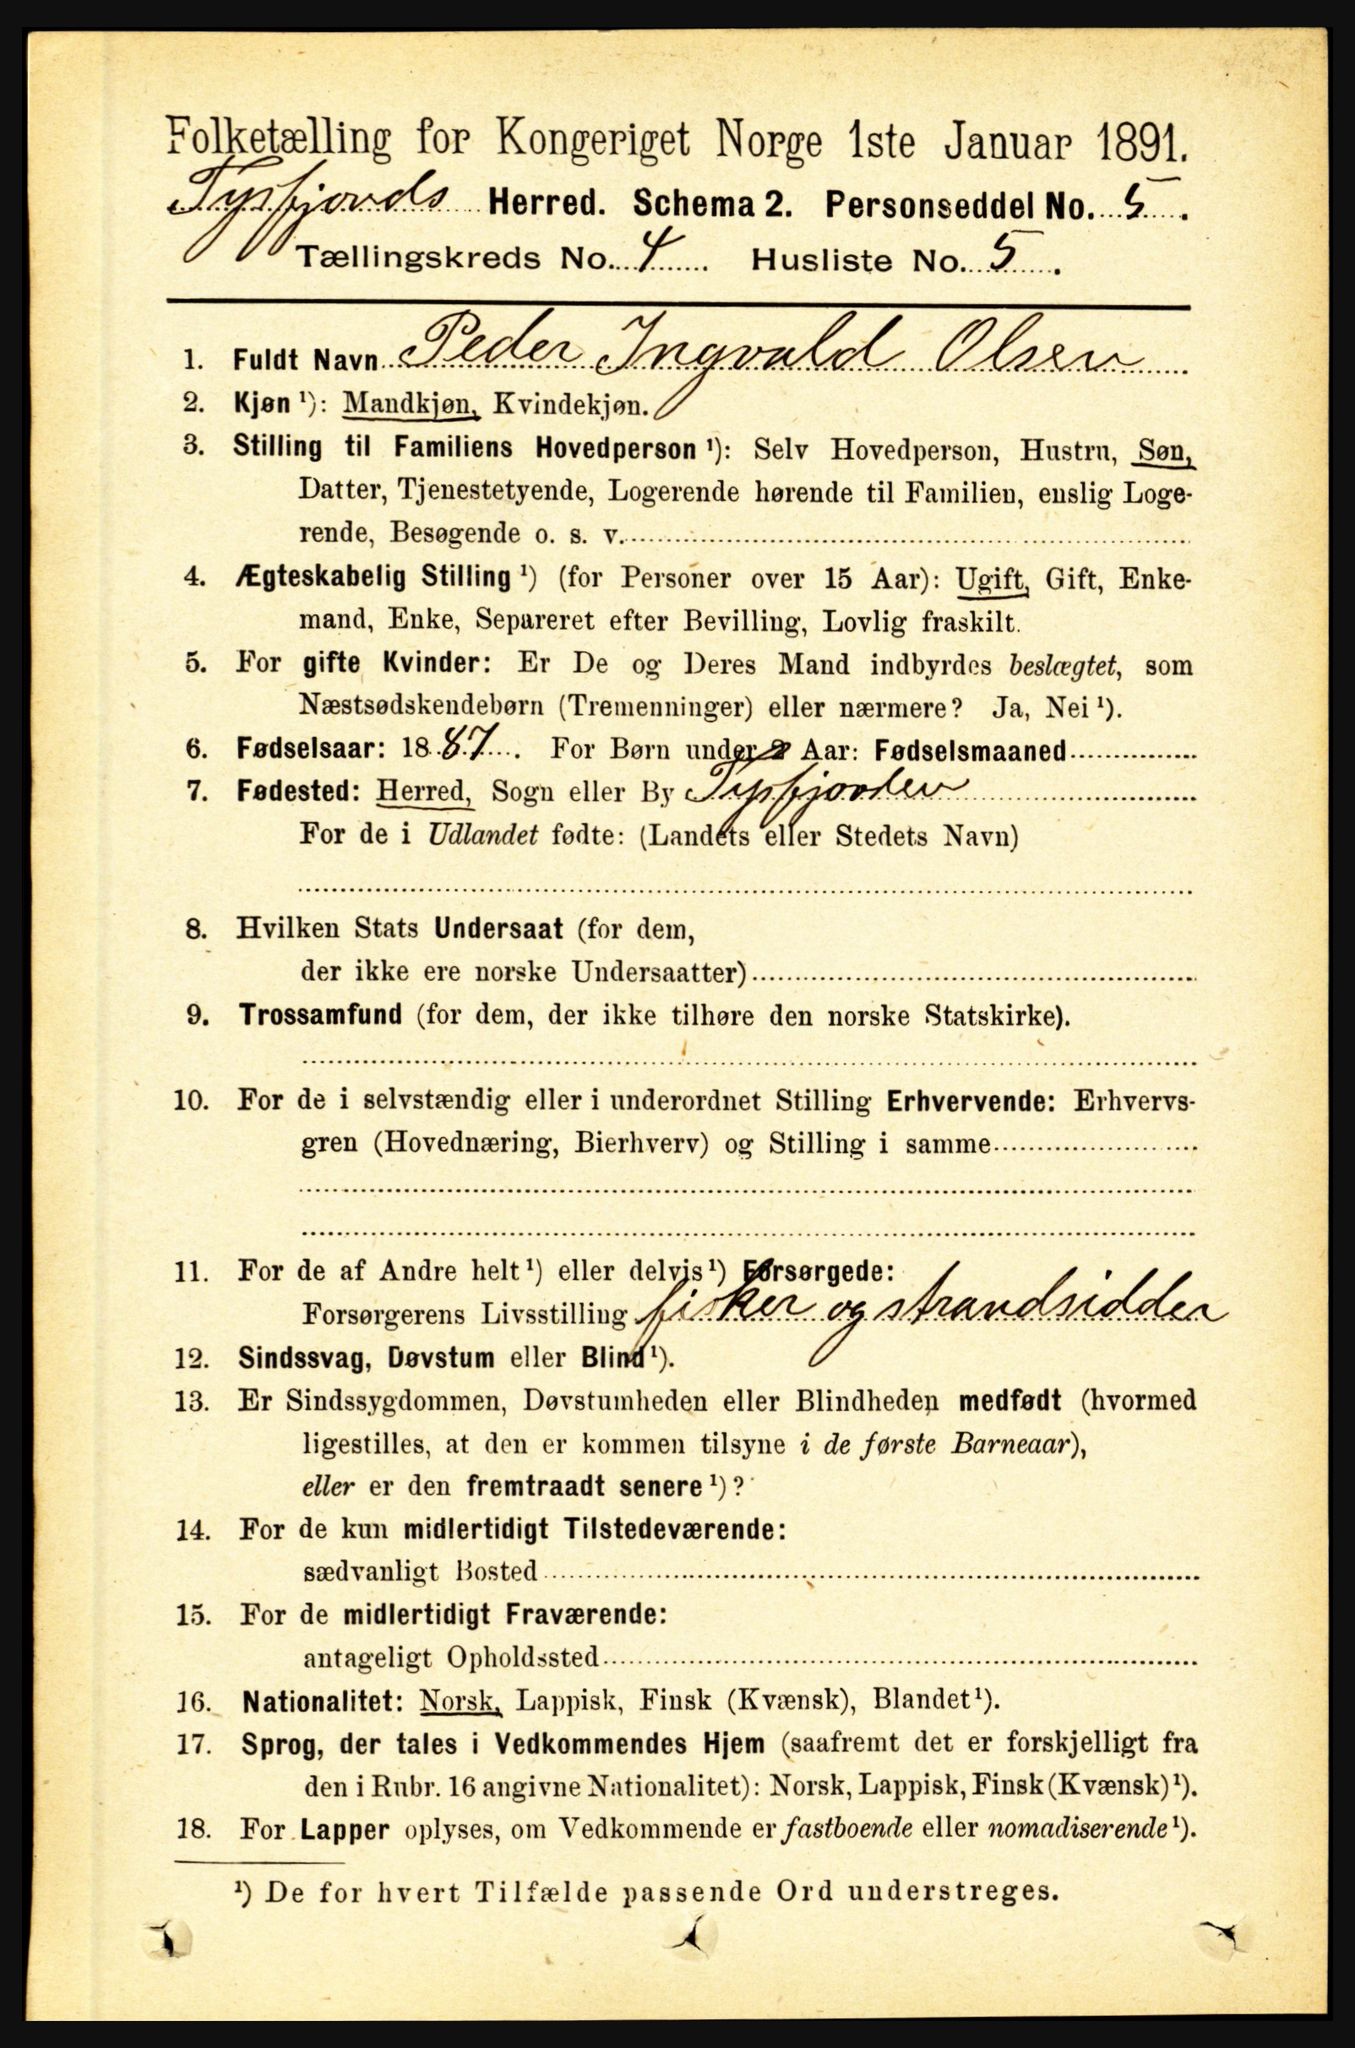 Folketælling for Kongeriget Norge 1ste Januar 1891.
Tysfjords Herred. Schema 2. Personseddel No. 5.
Tællingskreds No. 4 Husliste No. 5.
1. Fuldt Navn Peder Ingvald Olsen
2. Kjøn ¹): Mandkjøn, Kvindekjøn.
3. Stilling til Familiens Hovedperson ¹): Selv Hovedperson, Hustru, Søn,
Datter, Tjenestetyende, Logerende hørende til Familien, enslig Loge-
rende, Besøgende o. s. v.
4. Ægteskabelig Stilling ¹) (for Personer over 15 Aar): Ugift, Gift, Enke-
mand, Enke, Separeret efter Bevilling, Lovlig fraskilt.
5. For gifte Kvinder: Er De og Deres Mand indbyrdes beslægtet, som
Næstsødskendebørn (Tremenninger) eller nærmere? Ja, Nei ¹).
6. Fødselsaar: 1887. For Børn under 2 Aar: Fødselsmaaned
7. Fødested: Herred, Sogn eller By Tysfjorden
For de i Udlandet fødte: (Landets eller Stedets Navn)
8. Hvilken Stats Undersaat (for dem,
der ikke ere norske Undersaatter)
9. Trossamfund (for dem, der ikke tilhøre den norske Statskirke).
10. For de i selvstændig eller i underordnet Stilling Erhvervende: Erhvervs-
gren (Hovednæring, Bierhverv) og Stilling i samme
11. For de af Andre helt ¹) eller delvis ¹) Forsørgede:
Forsørgerens Livsstilling fisker og strandsidder
12. Sindssvag, Døvstum eller Blind ¹).
13. Er Sindssygdommen, Døvstumheden eller Blindheden medfødt (hvormed
ligestilles, at den er kommen tilsyne i de første Barneaar),
eller er den fremtraadt senere ¹)?
14. For de kun midlertidigt Tilstedeværende:
sædvanligt Bosted
15. For de midlertidigt Fraværende:
antageligt Opholdssted
16. Nationalitet: Norsk, Lappisk, Finsk (Kvænsk), Blandet ¹).
17. Sprog, der tales i Vedkommendes Hjem (saafremt det er forskjelligt fra
den i Rubr. 16 angivne Nationalitet): Norsk, Lappisk, Finsk (Kvænsk) ¹).
18. For Lapper oplyses, om Vedkommende er fastboende eller nomadiserende ¹).
¹) De for hvert Tilfælde passende Ord understreges.